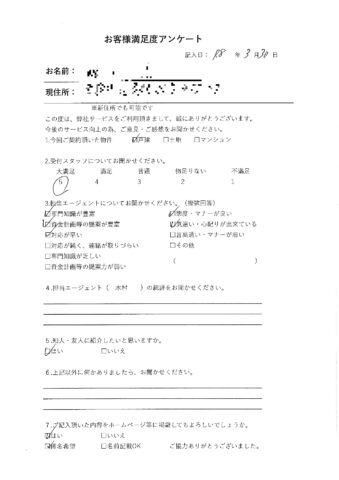 お客様満足度アンケート
記入日: R8 年 3 月 30 日
お名前:
現住所:
※新住所でも可能です
この度は、弊社サービスをご利用頂きまして、誠にありがとうございます。
今後のサービス向上の為、ご意見・ご感想をお聞かせください。
1.今回ご契約頂いた物件 ☑戸建 □土地 □マンション
2.受付スタッフについてお聞かせください。
大満足 満足 普通 物足りない 不満足
5 4 3 2 1
3.担当エージェントについてお聞かせください。(複数回答)
☑専門知識が豊富 ☑態度・マナーが良い
☑資金計画等の提案が豊富 ☑気遣い・心配りが出来ている
☑対応が早い □言葉遣い・マナーが悪い
□対応が鈍く、連絡が取りづらい □その他
□専門知識が乏しい ( )
□資金計画等の提案力が弱い
4.担当エージェント( 木村 )の総評をお聞かせください。
5.知人・友人に紹介したいと思いますか。
☑はい □いいえ
6.上記以外に何かありましたら、お聞かせください。
7.ご記入頂いた内容をホームページ等に掲載してもよろしいでしょうか。
☑はい □いいえ
☑匿名希望 □名前記載OK ご協力ありがとうございました。